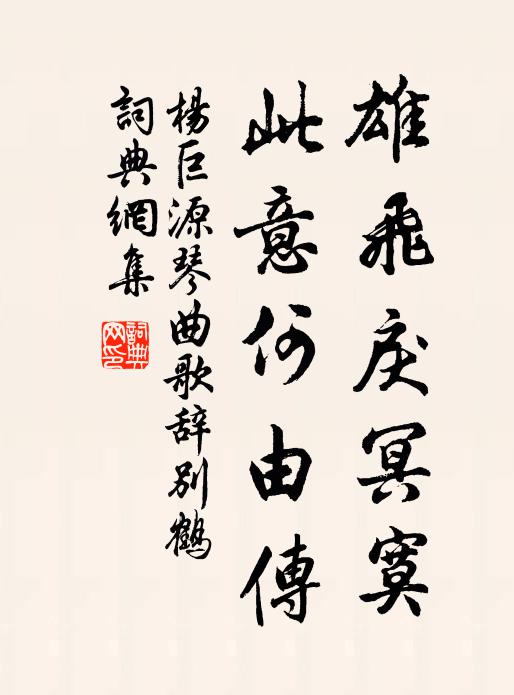 雄飛戾冥寞
此意何由傳
楊巨源琴曲歌辞別鶴
詞典網集
詞典网印